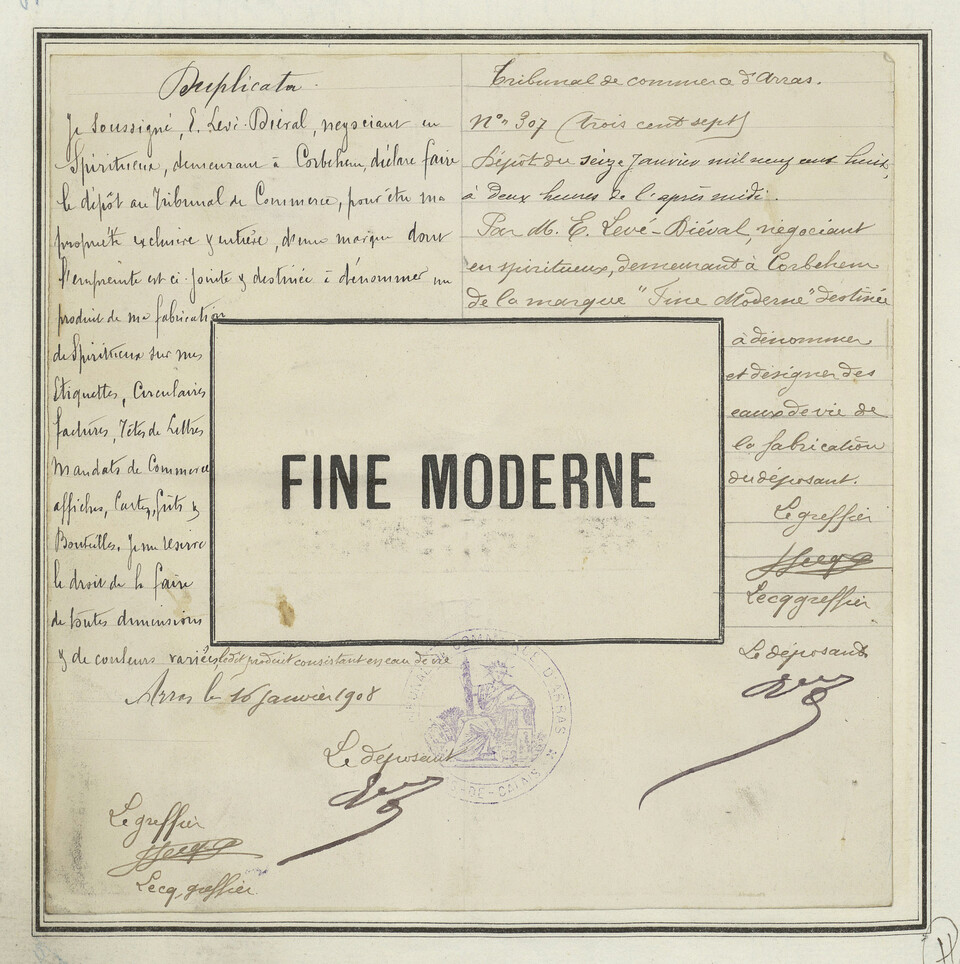 Duplicata
Je soussigné, E. Levé-Diéval, négociant en
Spiritueux, demeurant à Corbehem, déclare faire
le dépôt au Tribunal de Commerce, pour être ma
propriété exclusive & entière, d'une marque dont
l'empreinte est ci-jointe & destinée à dénommer un
produit de ma fabrication
de Spiritueux sur mes
Etiquettes, Circulaires
factures, Têtes de Lettres
Mandats de Commerce
affiches, Cartes, fûts &
Bouteilles. Je me réserve
le droit de la faire
de toutes dimensions
& de couleurs variées, ledit produit consistant en eau de vie
Arras le 16 Janvier 1908
Le déposant
Le greffier
Lecq, greffier
Tribunal de commerce d'Arras.
N° 307 (trois cent sept)
Dépôt du seize Janvier mil neuf cent huit,
à deux heures de l'après midi.
Par M. E. Levé-Diéval, négociant
en spiritueux, demeurant à Corbehem
de la marque "Fine Moderne" destinée
à dénommer
et désigner des
eaux de vie de
la fabrication
du déposant.
Le greffier
Lecq greffier
Le déposant
FINE MODERNE
COMMERCE D'ARRAS
DE-CALAIS
H